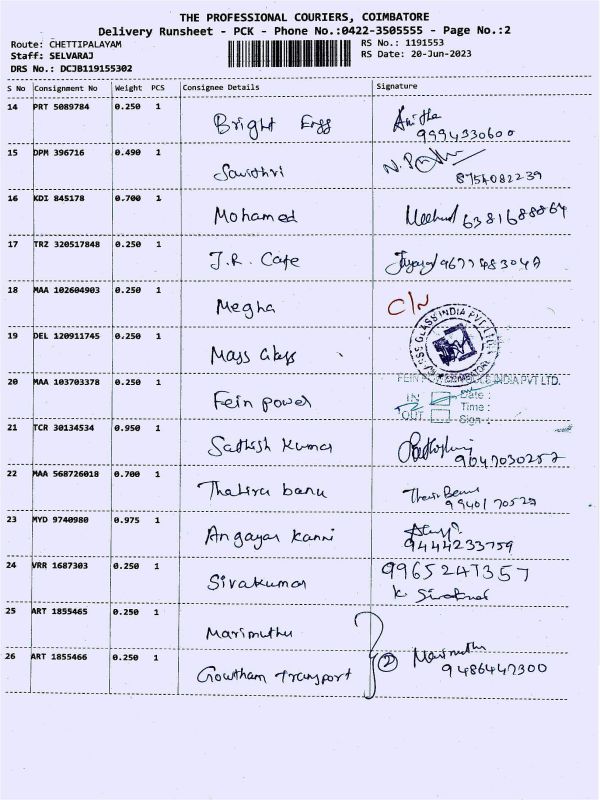 THE PROFESSIONAL COURIERS, COIMBATORE
Delivery Runsheet - PCK - Phone No.:0422-3505555 - Page No.:2
Route: CHETTIPALAYAM
RS No.: 1191553
Staff: SELVARAJ
RS Date: 20-Jun-2023
DRS No.: DCJB119155302
S No Consignment No Weight PCS Consignee Details Signature
14 PRT 5089784 0.250 1 Bright Engg Anitha
9994330600
15 DPM 396716 0.490 1 Savithri
8754082239
16 KDI 845178 0.700 1 Mohamed 6381688864
17 TRZ 320517848 0.250 1 J.R. Cafe 9677483048
18 MAA 102604903 0.250 1 Megha C/N
19 DEL 120911745 0.250 1 Mass Glass
GLASS INDIA PVT LTD
20 MAA 103703378 0.250 1 Fein power
FEIN INDIA PVT LTD.
IN Date :
Time :
OUT Sign :
21 TCR 30134534 0.950 1 Sathish Kumar
9047030252
22 MAA 568726018 0.700 1 Thahira banu
9940170523
23 MYD 9740980 0.975 1 Angayar Kanni
9444233759
24 VRR 1687303 0.250 1 Sivakumar 9965247357
K. Sivakumar
25 ART 1855465 0.250 1 Marimuthu
26 ART 1855466 0.250 1 Gowtham Transport 2 Marimuthu
9486447300